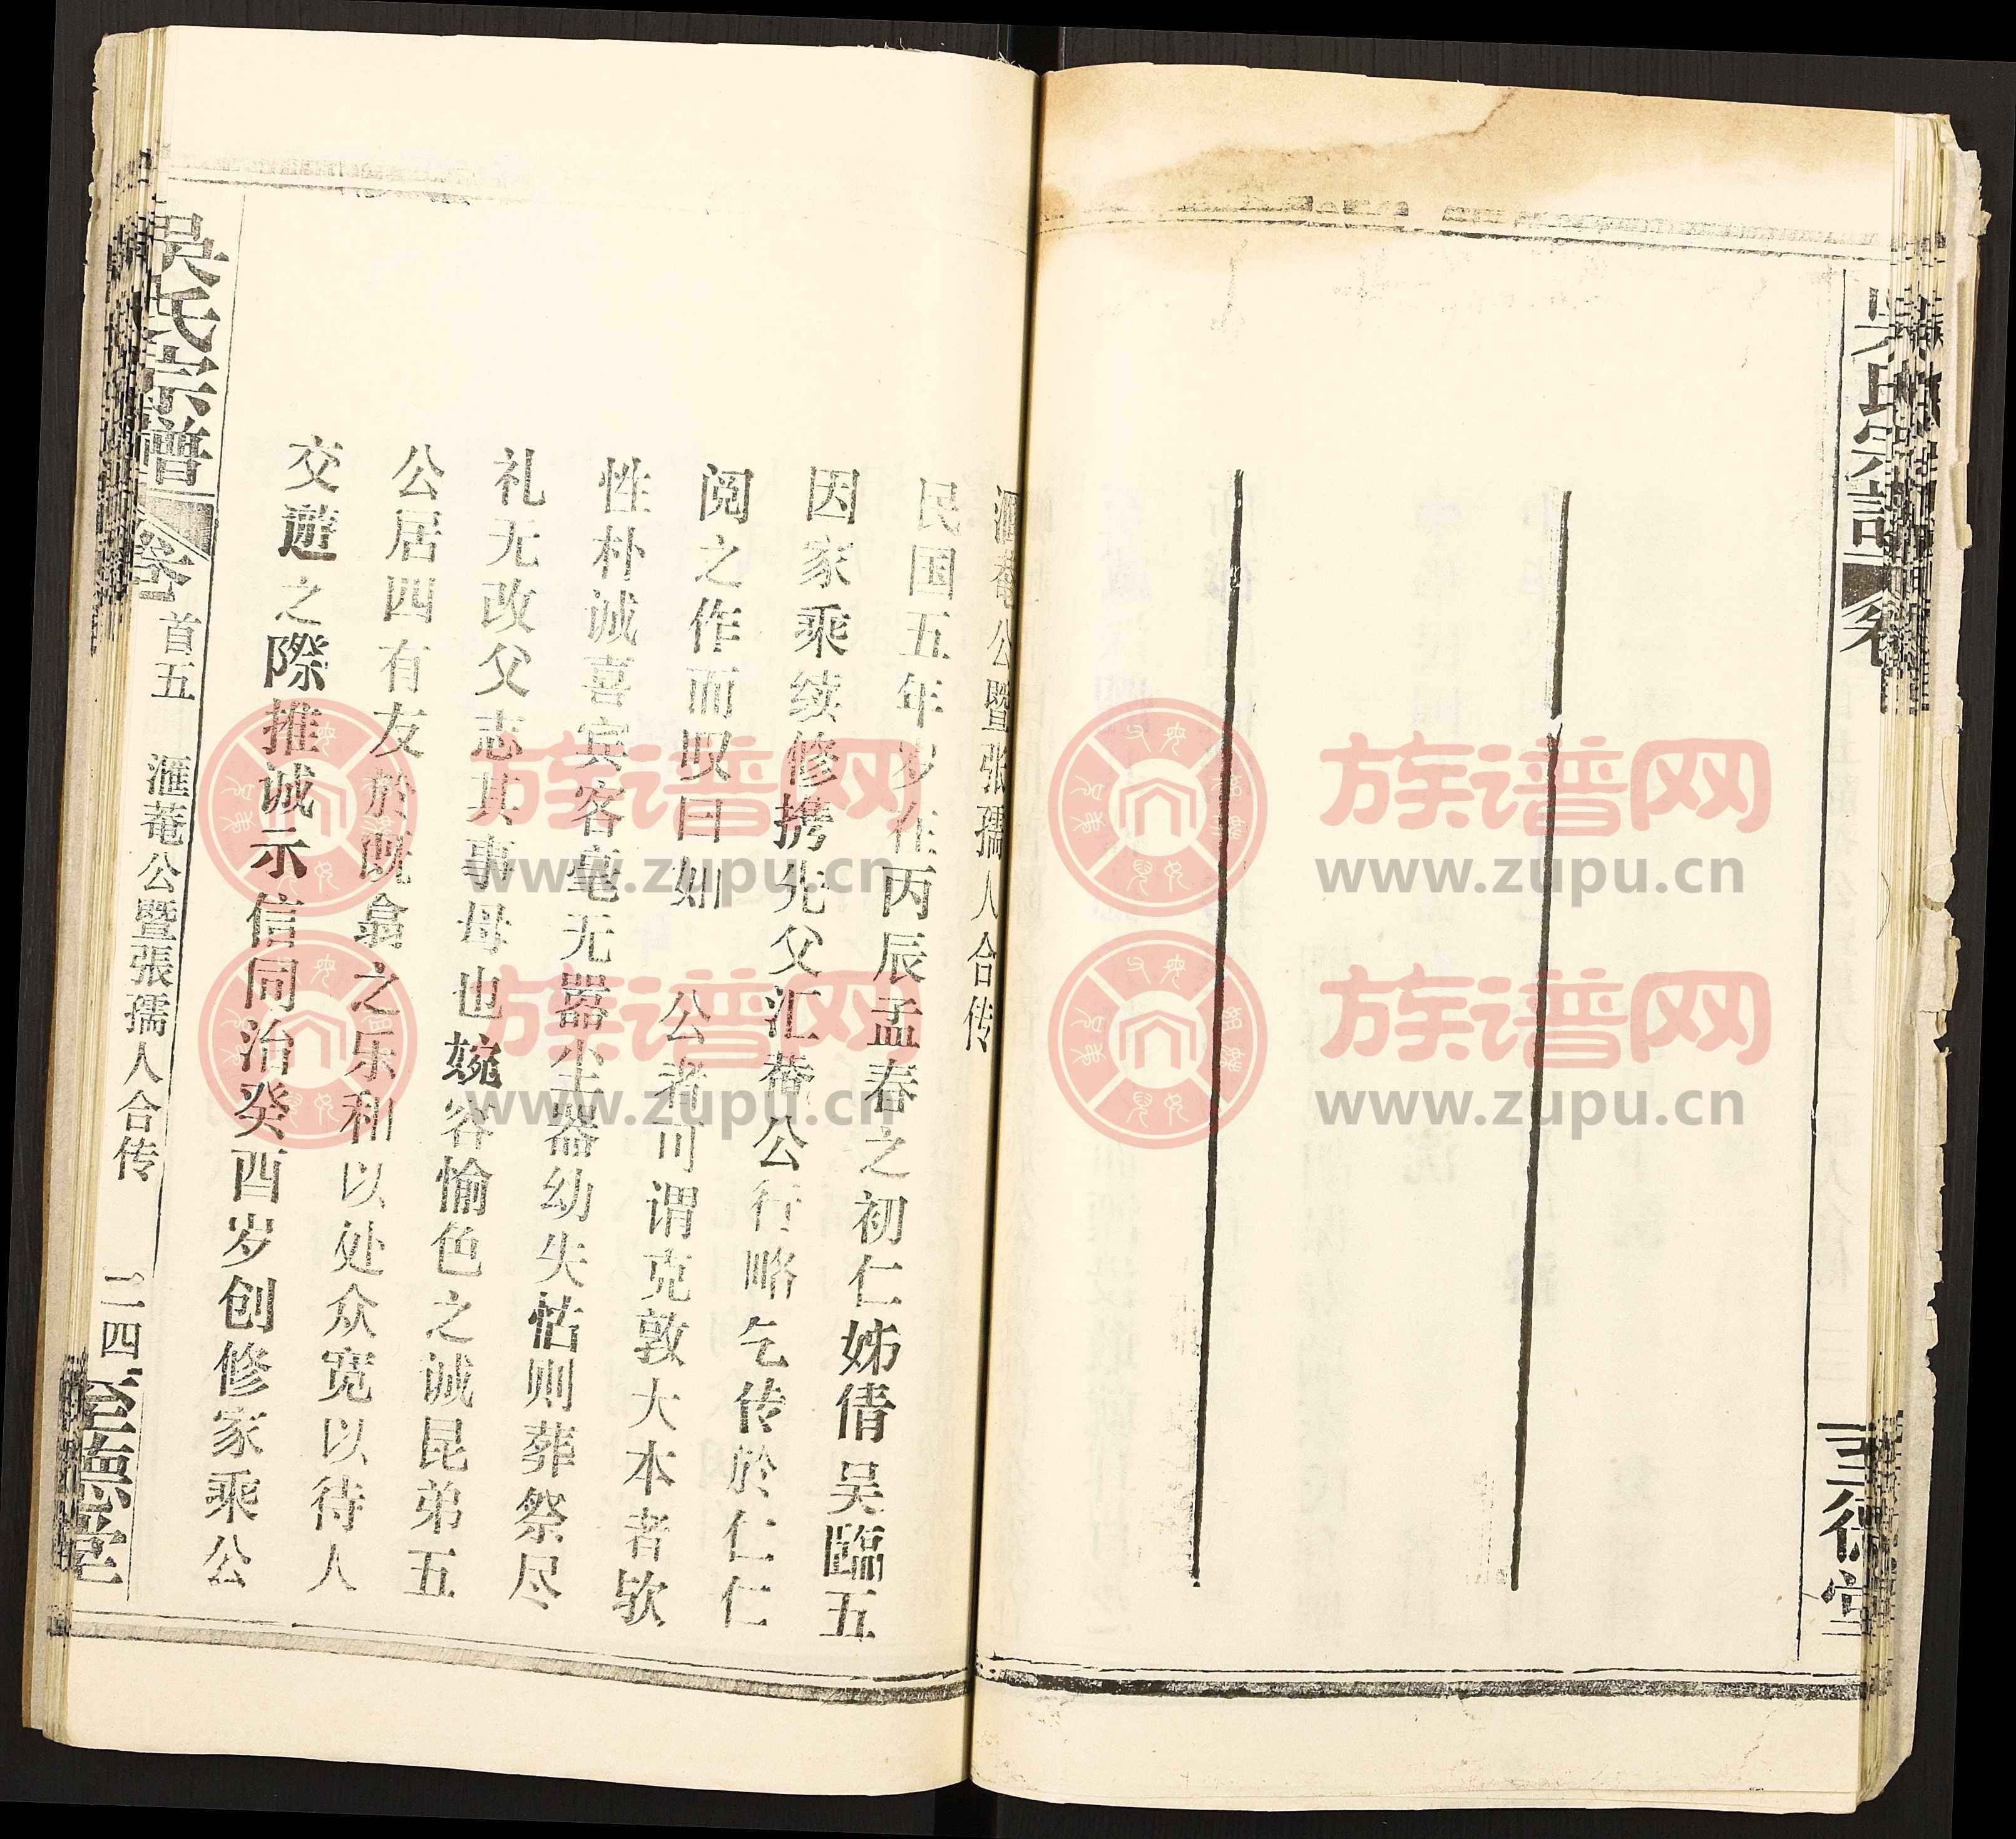 吴氏宗譜
卷
至德堂
滙菴公暨张孺人合传
民国五年岁在丙辰孟春之初仁姊倩吴臨五
因家乘续修携先父汇菴公行略乞传於仁仁
阅之作而叹曰如 公者可谓克敦大本者欤
性朴诚喜宾客毫无嚣尘器幼失怙则葬祭尽
礼无改父志其事母也婉容愉色之诚昆弟五
公居四有友於既翕之乐和以处众宽以待人
交遊之際推诚示信同治癸酉岁创修家乘公
吴氏宗譜
卷 首五 滙菴公暨張孺人合传 二四
至德堂
族谱网
www.zupu.cn
族谱网
www.zupu.cn
族谱网
www.zupu.cn
族谱网
www.zupu.cn